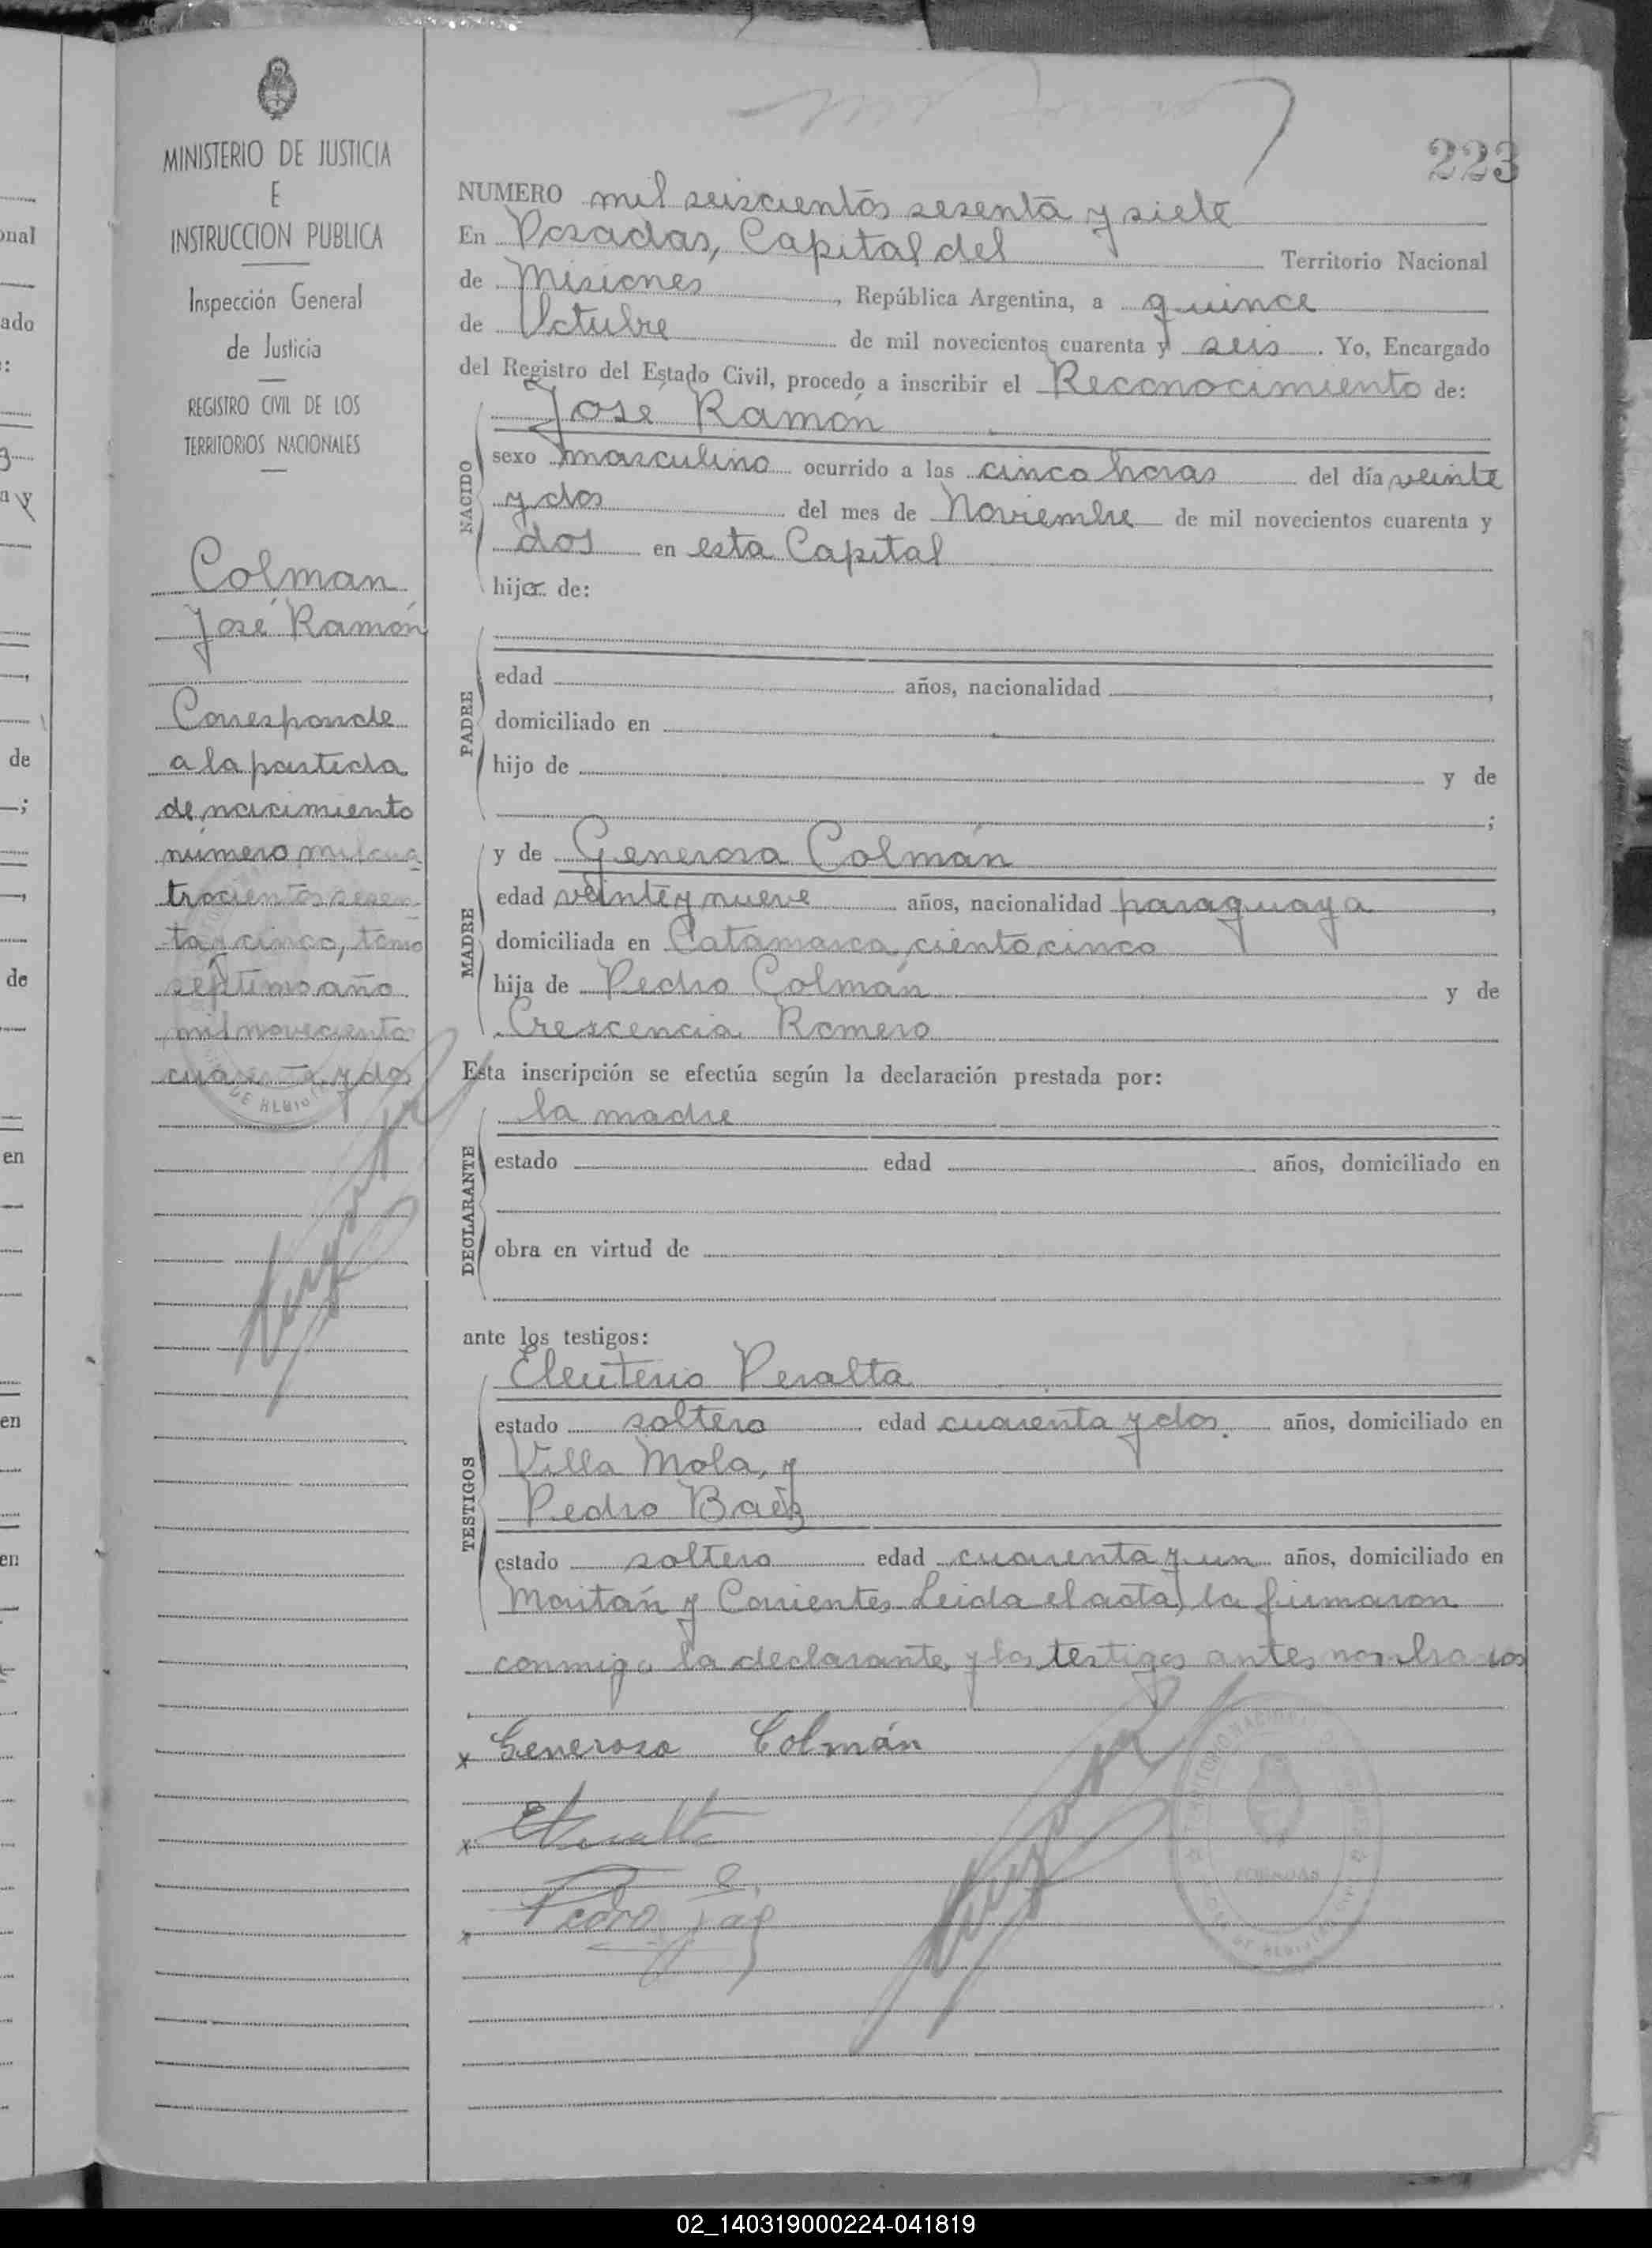 223
MINISTERIO DE JUSTICIA
E
INSTRUCCION PUBLICA
Inspección General
de Justicia
REGISTRO CIVIL DE LOS
TERRITORIOS NACIONALES
Colman
José Ramón
Corresponde
a la partida
de nacimiento
número mil cua
trocientos sesen
ta y cinco, tomo
séptimo año
mil novecientos
cuarenta y dos
NUMERO mil seiscientos sesenta y siete
En Posadas, Capital del Territorio Nacional
de Misiones, República Argentina, a quince
de Octubre de mil novecientos cuarenta y seis. Yo, Encargado
del Registro del Estado Civil, procedo a inscribir el Reconocimiento de:
José Ramón
NACIDO
sexo masculino ocurrido a las cinco horas del día veinte
y dos del mes de Noviembre de mil novecientos cuarenta y
dos en esta Capital
hijo de:
PADRE
edad años, nacionalidad ,
domiciliado en
hijo de y de
;
MADRE
y de Generosa Colmán
edad veinte y nueve años, nacionalidad paraguaya ,
domiciliada en Catamarca, ciento cinco
hija de Pedro Colmán y de
Crescencia Romero
Esta inscripción se efectúa según la declaración prestada por:
la madre
DECLARANTE
estado edad años, domiciliado en
obra en virtud de
ante los testigos:
TESTIGOS
Eleuterio Peralta
estado soltero edad cuarenta y dos. años, domiciliado en
Villa Mola, y
Pedro Baéz
estado soltero edad cuarenta y un años, domiciliado en
Maitán y Corrientes. Leida el acta, la firmaron
conmigo la declarante y los testigos antes nombrados
x Generosa Colmán
x
x Pedro
02_140319000224-041819